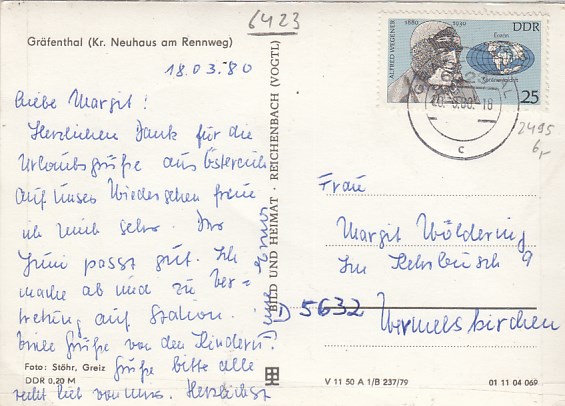 6423
Gräfenthal (Kr. Neuhaus am Rennweg)
18.03.80
Liebe Margit!
Herzlichen Dank für die
Urlaubsgrüße aus Österreich
auf unser Wiedersehen freue
ich mich sehr. Das
Juni passt gut. Ich
mache ab und zu Ver=
tretung auf Station.
Grüße von den Kindern.
Grüße bitte alle
recht lieb von uns. Herzlichst
Foto: Stöhr, Greiz
DDR 0,20 M
BILD UND HEIMAT · REICHENBACH (VOGTL)
ALFRED WEGENER
1880
1930
DDR
25
6423
20.-3.80.-18
c
2495
6,-
Frau
Margit Wöldering
Im Kehlbusch 9
D 5632 Wermelskirchen
V 11 50 A 1/B 237/79
01 11 04 069